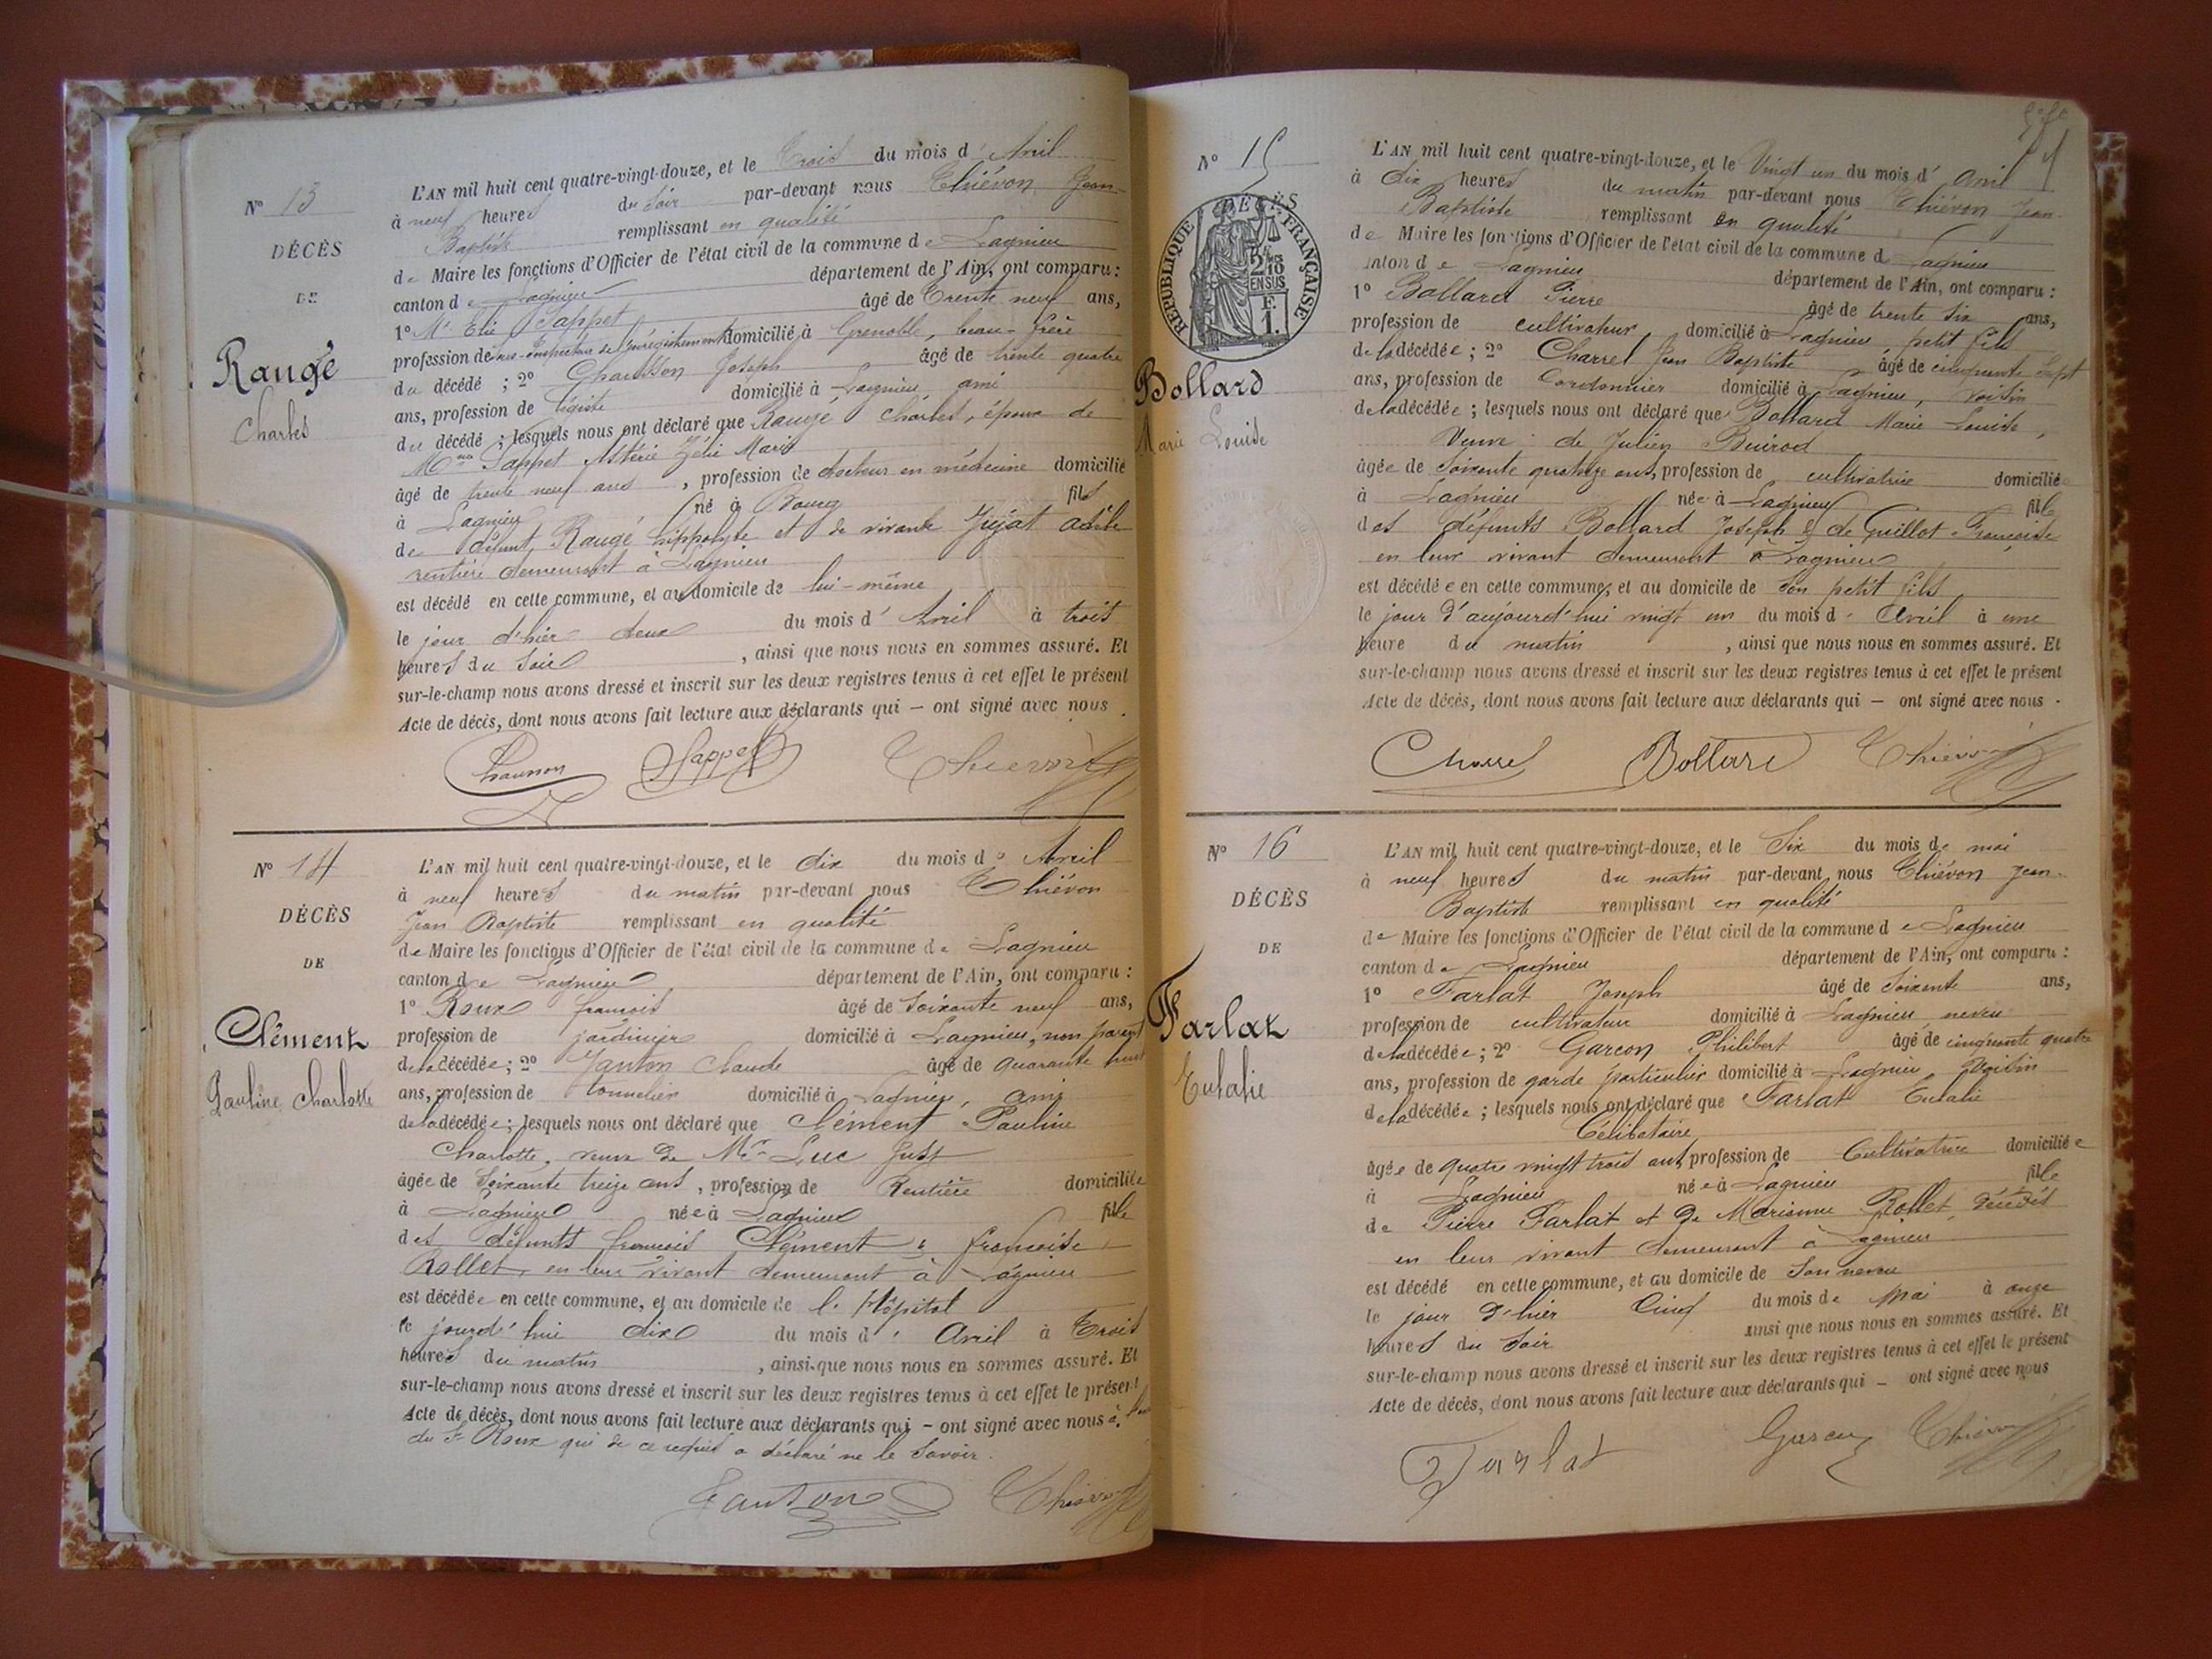 N° 13
DÉCÈS
DE
Raugé
Charles
L'AN mil huit cent quatre-vingt-douze, et le Trois du mois d' Avril
à neuf heures du soir par-devant nous Thiévon Jean-
Baptiste remplissant en qualité
de Maire les fonctions d'Officier de l'état civil de la commune de Lagnieu
canton de Lagnieu département de l'Ain, ont comparu :
1° Mr Elie Sappet âgé de Trente neuf ans,
profession de sous-Inspecteur de l'enregistrement domicilié à Grenoble, beau-frère
du décédé ; 2° Joseph âgé de trente quatre
ans, profession de domicilié à Lagnieu, ami
du décédé ; lesquels nous ont déclaré que Raugé Charles, époux de
Mme Sappet Zélie Marie
âgé de trente neuf ans , profession de docteur en médecine domicilié
à Lagnieu né à Bourg fils
de défunt Raugé hippolyte et de vivante Adèle
rentière demeurant à Lagnieu
est décédé en cette commune, et au domicile de lui-même
le jour d'hier deux du mois d' Avril à trois
heures du soir , ainsi que nous nous en sommes assuré. Et
sur-le-champ nous avons dressé et inscrit sur les deux registres tenus à cet effet le présent
Acte de décès, dont nous avons fait lecture aux déclarants qui — ont signé avec nous .
Sappet Thiévon
N° 14
DÉCÈS
DE
Clément
Pauline Charlotte
L'AN mil huit cent quatre-vingt-douze, et le dix du mois d' Avril
à neuf heures du matin par-devant nous Thiévon
Jean Baptiste remplissant en qualité
de Maire les fonctions d'Officier de l'état civil de la commune de Lagnieu
canton de Lagnieu département de l'Ain, ont comparu :
1° Roux françois âgé de soixante neuf ans,
profession de jardinier domicilié à Lagnieu, non parent
de la décédée ; 2° Janton Claude âgé de quarante huit
ans, profession de tonnelier domicilié à Lagnieu, ami
de la décédée ; lesquels nous ont déclaré que Clément Pauline
Charlotte, veuve de Mr Luc Just
âgée de Soixante treize ans , profession de Rentière domiciliée
à Lagnieu née à Lagnieu fille
des défunts françois Clément & françoise
Rollet, en leur vivant demeurant à Lagnieu
est décédée en cette commune, et au domicile de l'Hôpital
le jourd'hui dix du mois d' Avril à Trois
heures du matin , ainsi que nous nous en sommes assuré. Et
sur-le-champ nous avons dressé et inscrit sur les deux registres tenus à cet effet le présent
Acte de décès, dont nous avons fait lecture aux déclarants qui — ont signé avec nous à
du Sr Roux qui de ce requis a déclaré ne le savoir.
Janton Thiévon
N° 15
DÉCÈS
RÉPUBLIQUE FRANÇAISE
2/10 EN SUS
F. 1.
Bollard
Marie Louise
L'AN mil huit cent quatre-vingt-douze, et le Vingt un du mois d' avril
à Dix heures du matin par-devant nous Thiévon Jean
Baptiste remplissant en qualité
de Maire les fonctions d'Officier de l'état civil de la commune de Lagnieu
canton de Lagnieu département de l'Ain, ont comparu :
1° Bollard Pierre âgé de trente six ans,
profession de cultivateur domicilié à Lagnieu petit fils
de la décédée ; 2° Charrel Jean Baptiste âgé de cinquante sept
ans, profession de Cordonnier domicilié à Lagnieu, voisin
de la décédée ; lesquels nous ont déclaré que Bollard Marie Louise,
Veuve de Julien
âgée de Soixante quatorze ans, profession de cultivatrice domiciliée
à Lagnieu née à Lagnieu fille
des défunts Bollard Joseph & de Guillot Françoise
en leur vivant demeurant à Lagnieu
est décédée en cette commune, et au domicile de son petit fils
le jour d'aujourd'hui vingt un du mois d' Avril à une
heure du matin , ainsi que nous nous en sommes assuré. Et
sur-le-champ nous avons dressé et inscrit sur les deux registres tenus à cet effet le présent
Acte de décès, dont nous avons fait lecture aux déclarants qui — ont signé avec nous .
Charrel Bollard Thiévon
N° 16
DÉCÈS
DE
Farlat
Eulalie
L'AN mil huit cent quatre-vingt-douze, et le Six du mois de mai
à neuf heures du matin par-devant nous Thiévon Jean-
Baptiste remplissant en qualité
de Maire les fonctions d'Officier de l'état civil de la commune de Lagnieu
canton de Lagnieu département de l'Ain, ont comparu :
1° Farlat Joseph âgé de Soixante ans,
profession de cultivateur domicilié à Lagnieu neveu
de la décédée ; 2° Garcon Philibert âgé de cinquante quatre
ans, profession de garde particulier domicilié à Lagnieu, Voisin
de la décédée ; lesquels nous ont déclaré que Farlat Eulalie
Célibataire
âgée de quatre vingt trois ans, profession de Cultivatrice domiciliée
à Lagnieu née à Lagnieu fille
de Pierre Farlat et de Marianne Rollet, décédés
en leur vivant demeurant à Lagnieu
est décédé en cette commune, et au domicile de Son neveu
le jour d'hier Cinq du mois de Mai à onze
heures du soir ainsi que nous nous en sommes assuré. Et
sur-le-champ nous avons dressé et inscrit sur les deux registres tenus à cet effet le présent
Acte de décès, dont nous avons fait lecture aux déclarants qui — ont signé avec nous
Farlat Garcon Thiévon